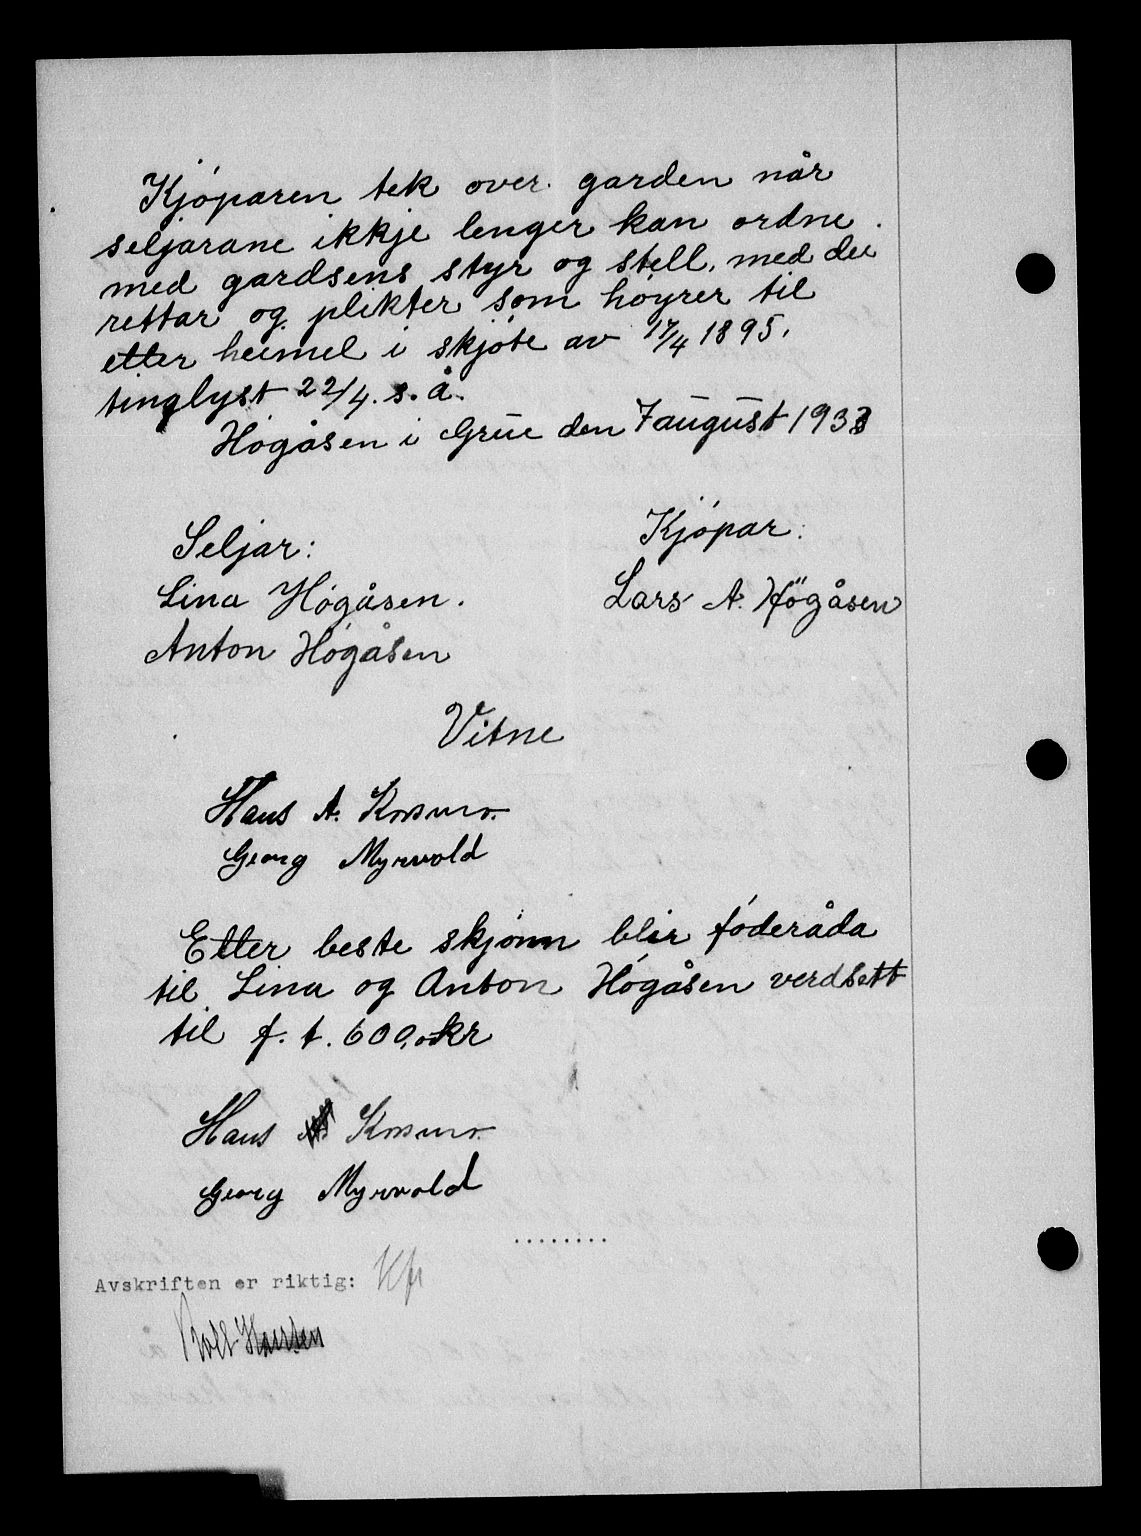 Kjøparen tek over garden når
seljarane ikkje lenger kan ordne
med gardsens styr og stell, med dei
rettar og plikter som høyrer til
etter heimel i skjøte av 17/4 1895,
tinglyst 22/4. s. å.
Høgåsen i Grue den 7 august 1933
Seljar: Kjøpar:
Lina Høgåsen. Lars A. Högåsen
Anton Høgåsen
Vitne
Hans A. Kosmo.
Georg Myrvold
Etter beste skjønn blir føderåda
til Lina og Anton Høgåsen verdsett
til f. t. 600,0 kr
Hans Kosmo.
Georg Myrvold
........
Avskriften er riktig:
Hansen